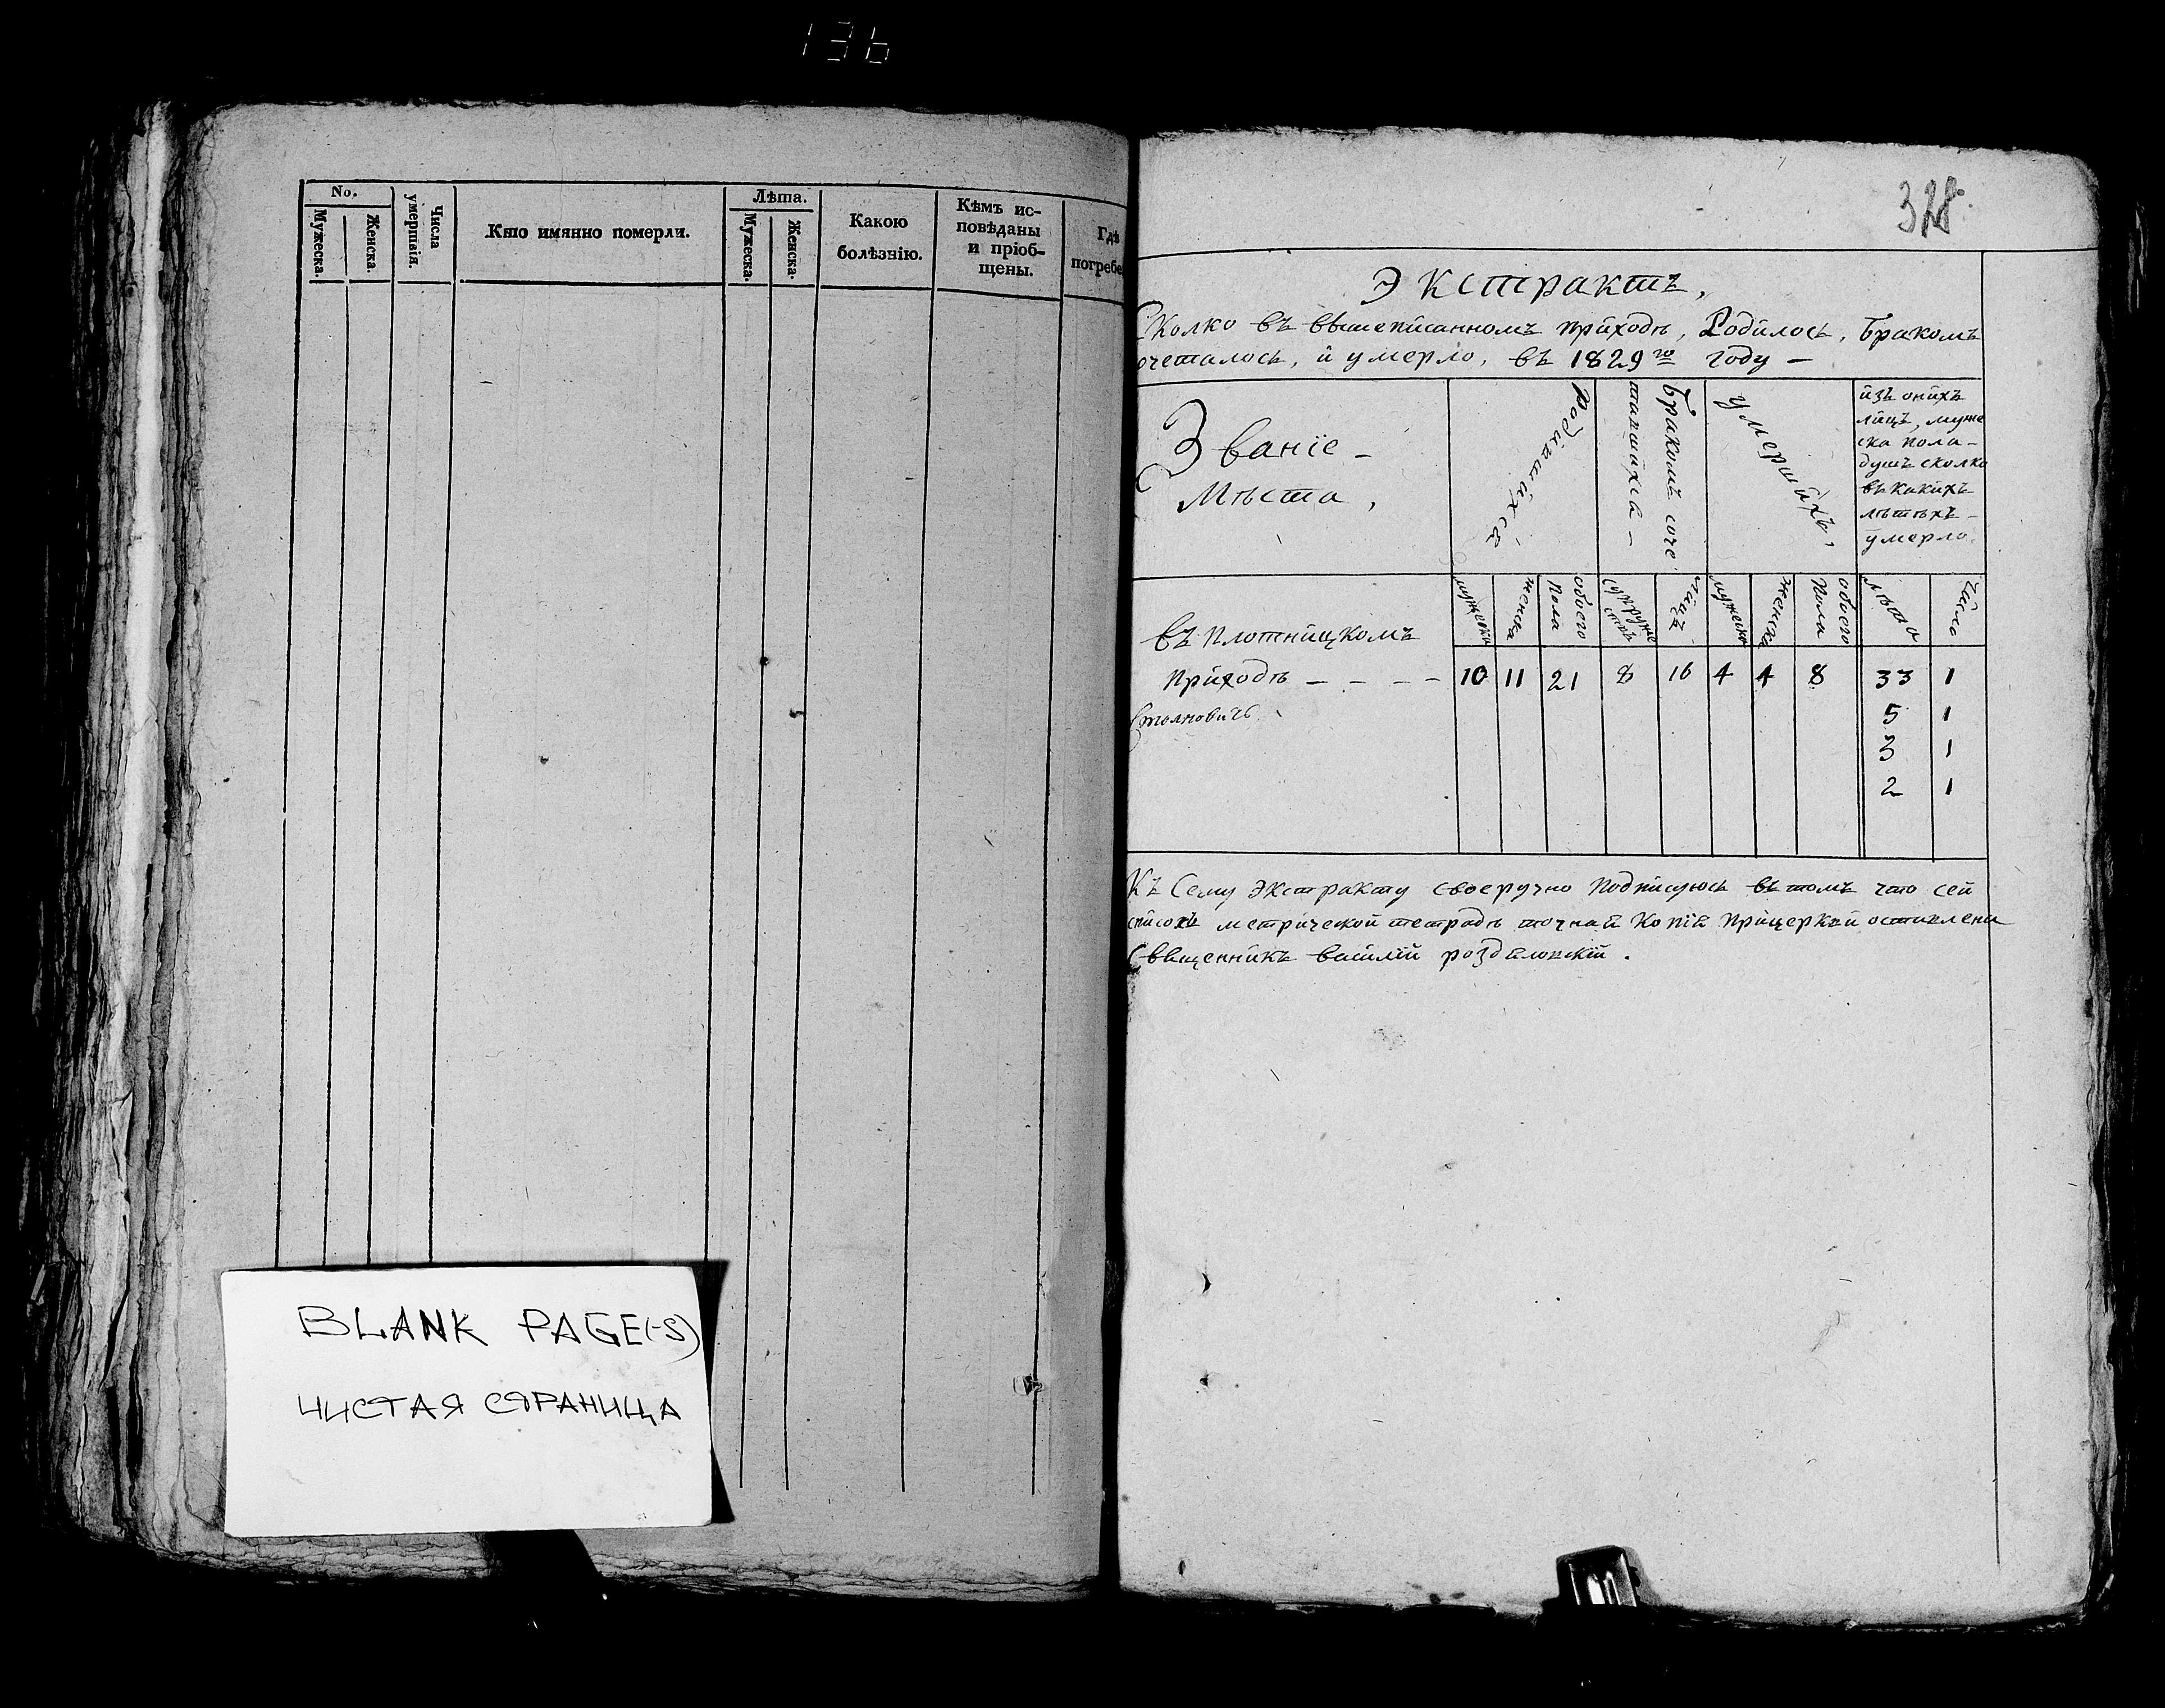 136
No.
Мужеска.
Женска.
Числа умертвія.
Кто имянно померли.
Лѣта.
Мужеска.
Женска.
Какою
болѣзнію.
Кѣмъ ис-
повѣданы
и пріоб-
щены.
Гдѣ
погребе
BLANK PAGE(-S)
ЧИСТАЯ СТРАНИЦА
328.
Экстрактъ,
Сколко въ вышеписанномъ приходѣ, Родилось, Бракомъ
очеталось, и умерло, въ 1829го году –
Званіе –
Мѣста,
Родившихся –
Бракомъ соче
тавшихся –
умершихъ,
изъ онихъ
лицъ, муже
ска пола –
душъ сколко
въ какихъ
лѣтѣхъ –
умерло.
мужеска
женска
обоего
пола
супруже
ствъ
лицъ
мужеска
женска
обоего
пола
лѣта
число
въ плотницкомъ
приходѣ – – – – 10 11 21 8 16 4 4 8 33 1
5 1
3 1
2 1
Къ Сему экстракту своеручно подписуюсь въ томъ что сей
списокъ метрической тетрадѣ точная копія прицеркви оставлена
Священникъ василій